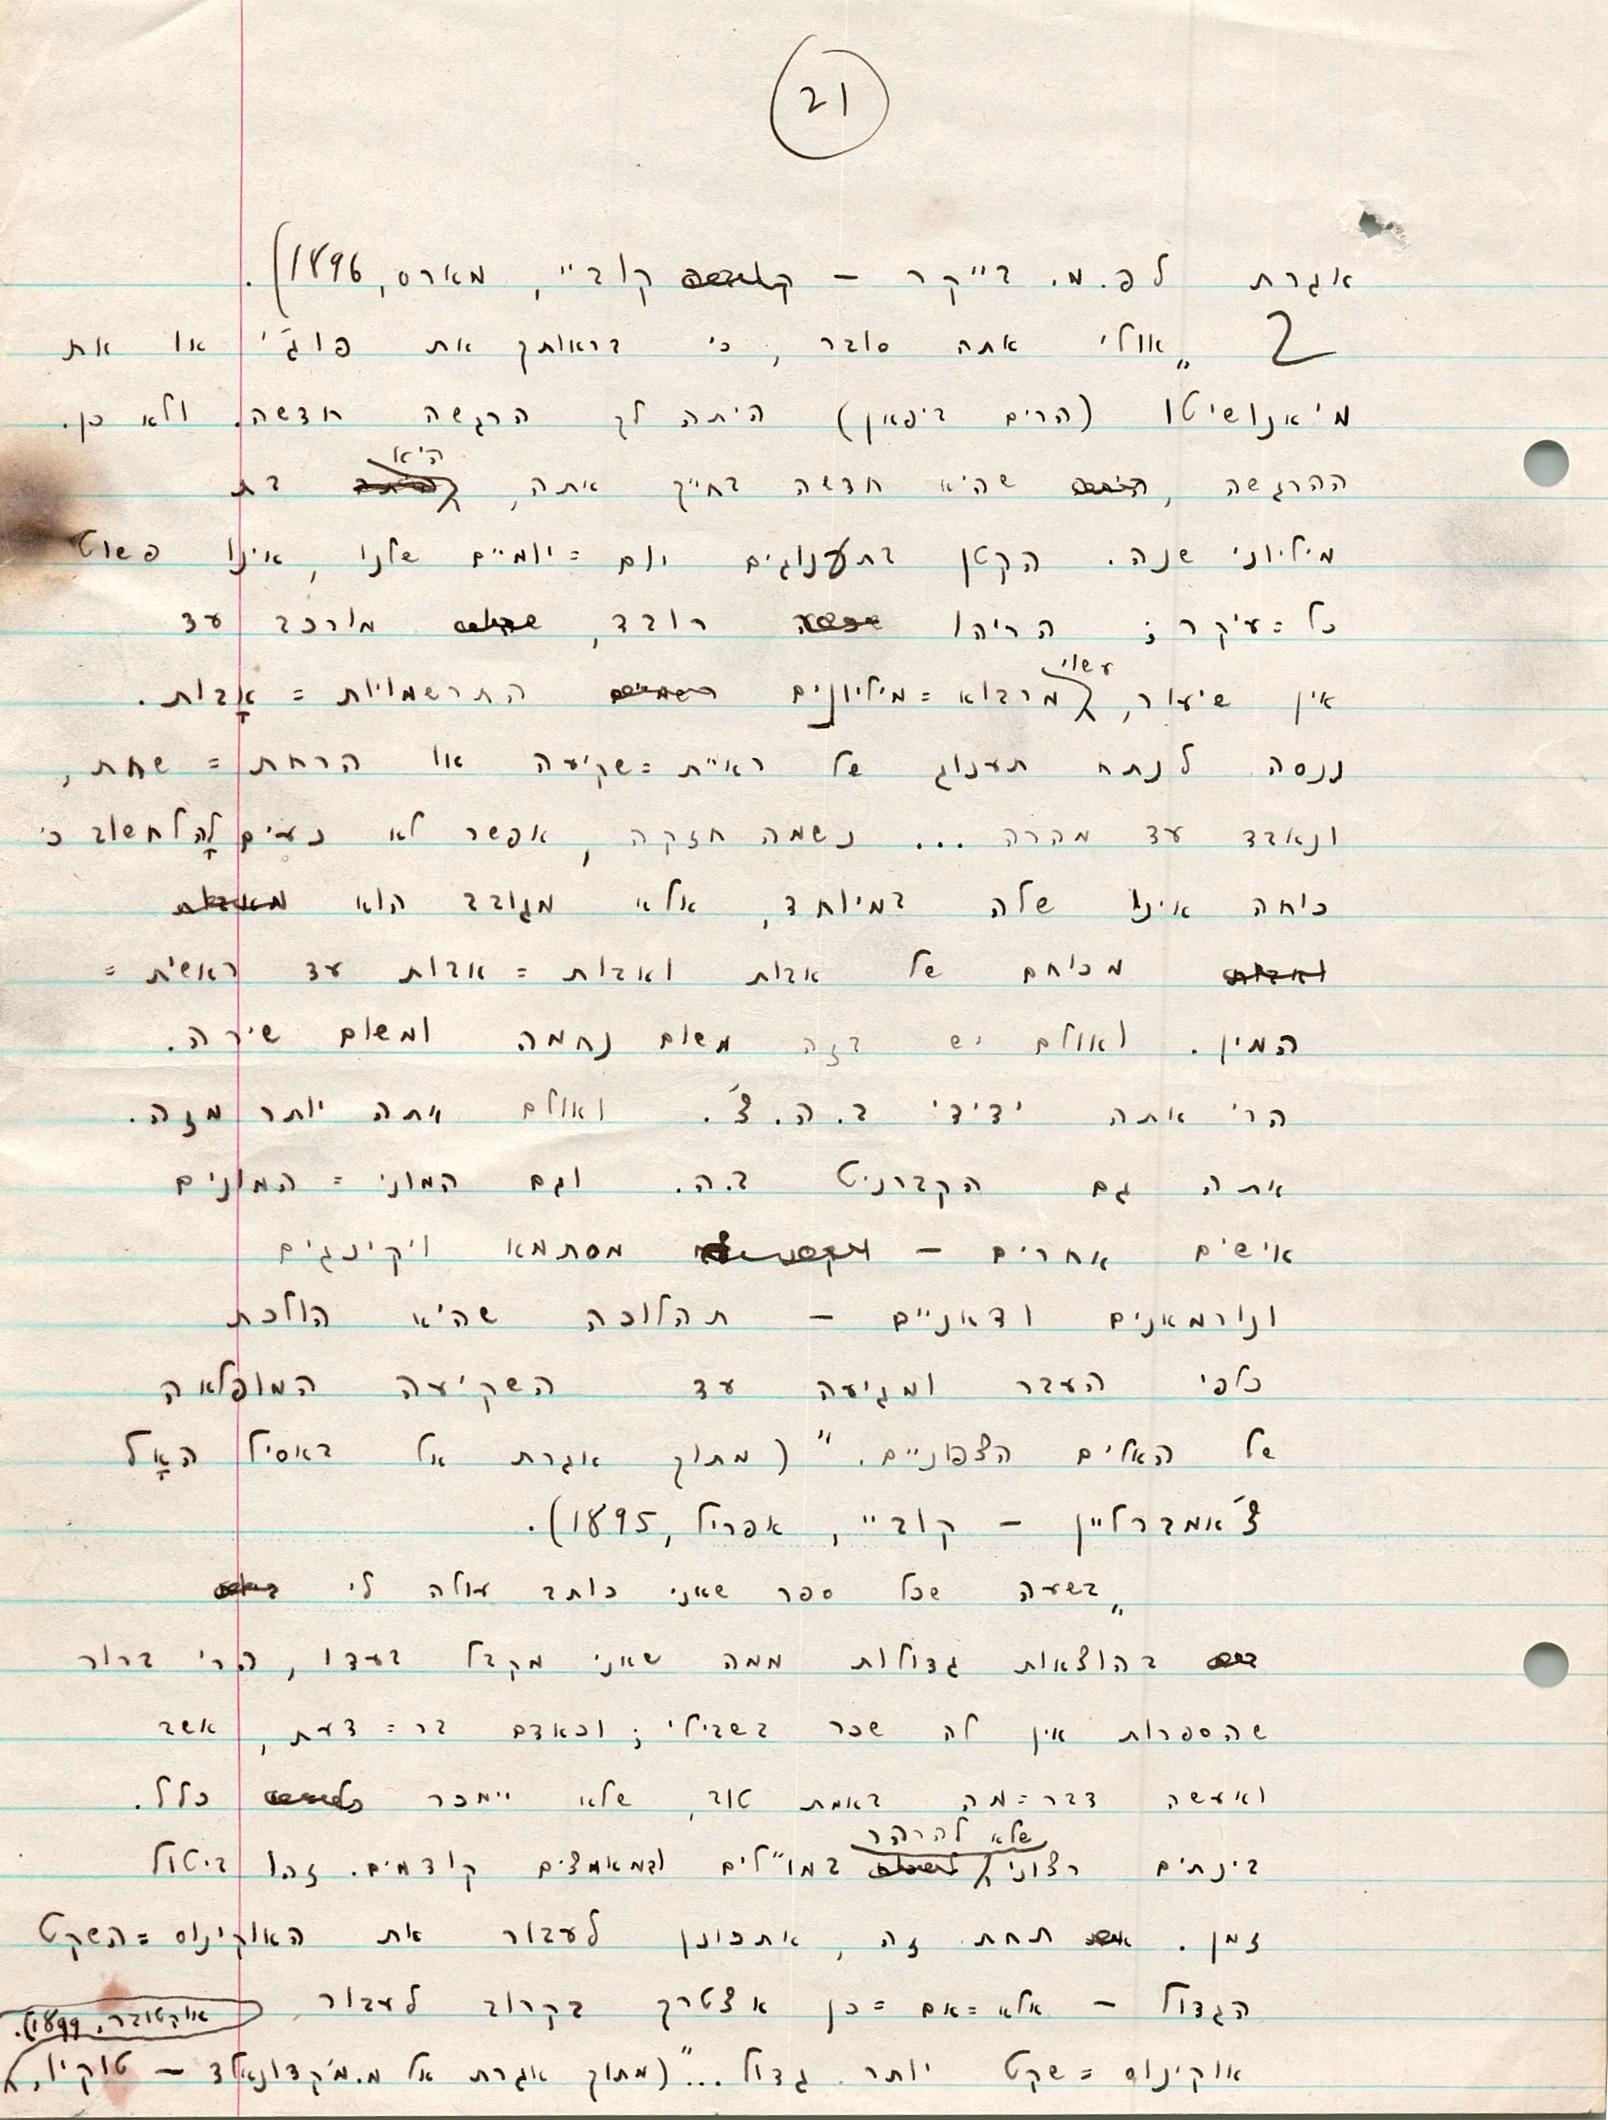 21
אגרת לפ.מ. בייקר – קוביי, מארס, 1896).
„אולי אתה סובר, כי בראותך את פוג׳י או את
מיאנושיטו (הרים ביפאן) היתה לך הרגשה חדשה. ולא כן.
ההרגשה, שהיא חדשה בחייך אתה, היא בת
מיליוני שנה. הקטן בתענוגים יום=יומיים שלנו, אינו פשוט
כל=עיקר; הריהו רובד, מורכב עד
אין שיעור, עשוי מרבוא=מיליונים התרשמויות=אָבות.
ננסה לנתח תענוג של ראיית=שקיעה או הרחת=שחת,
ונאבד עד מהרה... נשמה חזקה, אפשר לא נעים לָהּ לחשוב כי
כוחה אינו שלה במיוחד, אלא מגובב הוא
מכוחם של אבות ואבות=אבות עד ראשית=
המין. ואולם יש בזה משום נחמה ומשום שירה.
הרי אתה ידידי ב.ה.צ׳. ואולם אתה יותר מזה.
אתה גם הקברניט ב.ה. וגם המוני=המונים
אישים אחרים – מסתמא ויקינגים
ונורמאנים ודאניים – תהלוכה שהיא הולכת
כלפי העבר ומגיעה עד השקיעה המופלאה
של האלים הצפוניים.״ (מתוך אגרת אל באסיל האָל
צ׳אמברליין – קוביי, אפריל, 1895).
„בשעה שכל ספר שאני כותב עולה לי
בהוצאות גדולות ממה שאני מקבל בעדו, הרי ברור
שהספרות אין לה שכר בשבילי; וכאדם בר=דעת, אשב
ואעשה דבר=מה באמת טוב, שלא יימכר כלל.
בינתים רצוני שלא להרהר במו״לים ובמאמצים קודמים. זהו ביטול
זמן. תחת זה, אתכונן לעבור את האוקינוס=השקט
הגדול – אלא=אם=כן אצטרך בקרוב לעבור
אוקינוס=שקט יותר גדול...״ (מתוך אגרת אל מ.מ׳קדונאלד – טוקיו, אוקטובר, 1899).